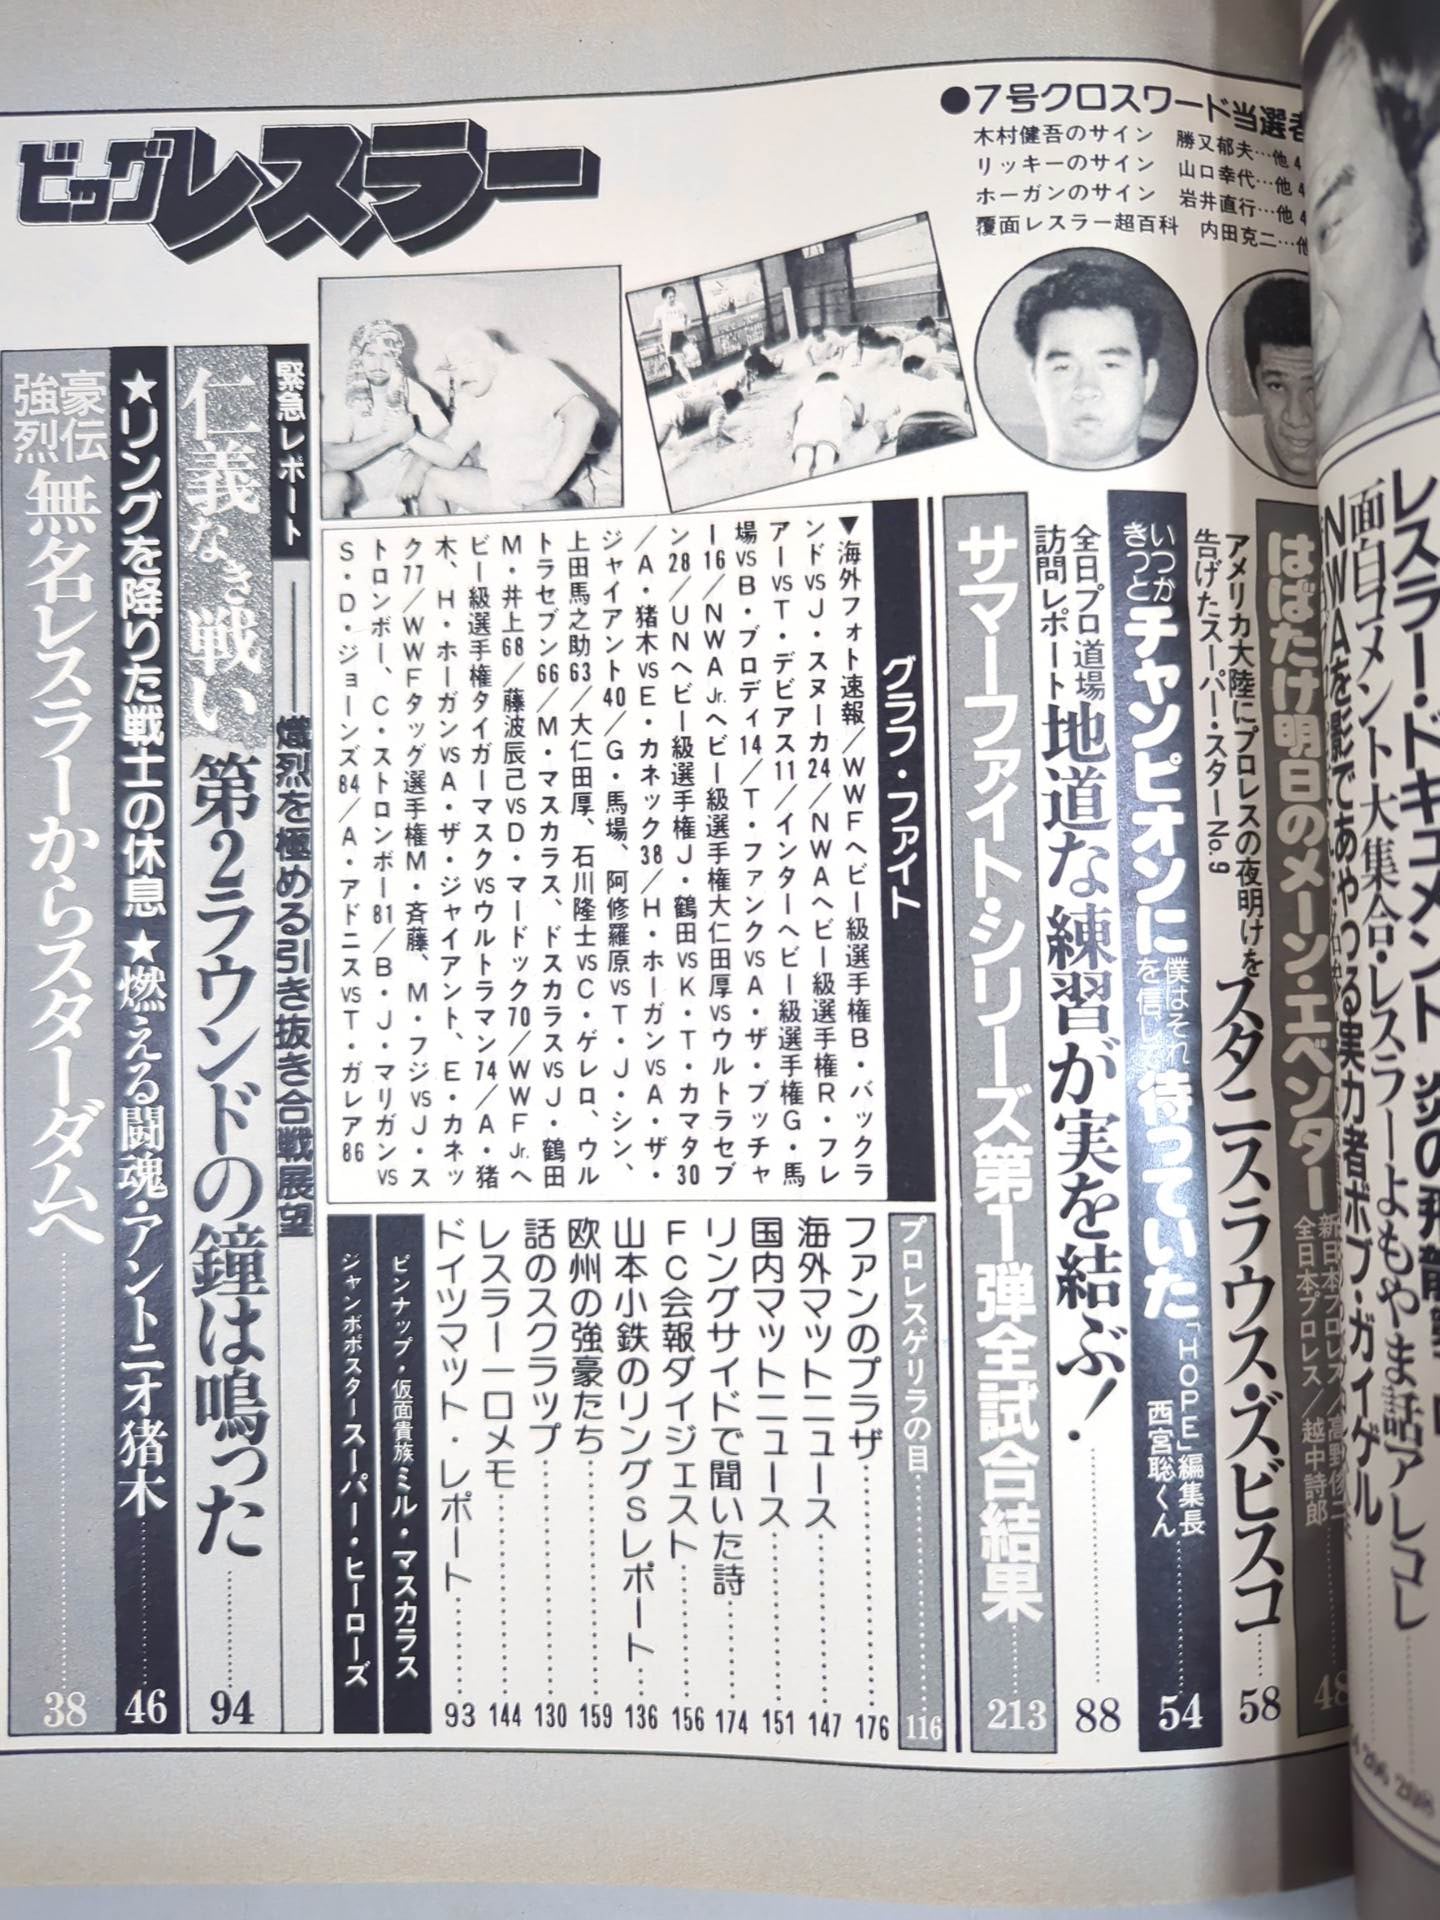 ビッグレスラー
●7号クロスワード当選者
木村健吾のサイン 勝又郁夫…他4
リッキーのサイン 山口幸代…他4
ホーガンのサイン 岩井直行…他4
覆面レスラー超百科 内田克二…他
レスラー・ドキュメント 炎の
面白コメント大集合・レスラーよもやま話アレコレ
208
206
NWAを影であやつる実力者ボブ・ガイゲル
はばたけ明日のメーン・エベンター
新日本プロレス
全日本プロレス/越中詩郎
48
アメリカ大陸にプロレスの夜明けを
告げたスーパー・スターNo.9
スタニスラウス・ズビスコ
58
いつか
きっと
チャンピオンに
僕はそれ
を信じて
待っていた
「HOPE」編集長
西宮聡くん
54
全日プロ道場
訪問レポート
地道な練習が実を結ぶ!
88
サマーファイト・シリーズ第1弾全試合結果
213
グラフ・ファイト
▼海外フォト速報/WWFヘビー級選手権B・バックラ
ンドVSJ・スヌーカ24/NWAヘビー級選手権R・フレ
アーVST・デビアス11/インターヘビー級選手権G・馬
場VSB・ブロディ14/T・ファンクVSA・ザ・ブッチャ
ー16/NWAJr.ヘビー級選手権大仁田厚VSウルトラセブ
ン28/UNヘビー級選手権J・鶴田VSK・T・カマタ30
/A・猪木VSE・カネック38/H・ホーガンVSA・ザ・
ジャイアント40/G・馬場、阿修羅原VST・J・シン、
上田馬之助63/大仁田厚、石川隆士VSC・ゲレロ、ウル
トラセブン66/M・マスカラス、ドスカラスVSJ・鶴田
M・井上68/藤波辰己VSD・マードック70/WWFJr.ヘ
ビー級選手権タイガーマスクVSウルトラマン74/A・猪
木、H・ホーガンVSA・ザ・ジャイアント、E・カネッ
ク77/WWFタッグ選手権M・斉藤、M・フジVSJ・ス
トロンボー、C・ストロンボー81/B・J・マリガンVS
S・D・ジョーンズ84/A・アドニスVST・ガレア86
プロレスゲリラの目
116
ファンのプラザ
176
海外マットニュース
147
国内マットニュース
151
リングサイドで聞いた詩
174
FC会報ダイジェスト
156
山本小鉄のリングSレポート
136
欧州の強豪たち
159
話のスクラップ
130
レスラー一口メモ
144
ドイツマット・レポート
93
ピンナップ・仮面貴族ミル・マスカラス
ジャンボポスタースーパー・ヒーローズ
緊急レポート
熾烈を極める引き抜き合戦展望
仁義なき戦い 第2ラウンドの鐘は鳴った
94
★リングを降りた戦士の休息★燃える闘魂・アントニオ猪木
46
豪伝
強烈
無名レスラーからスターダムへ
38